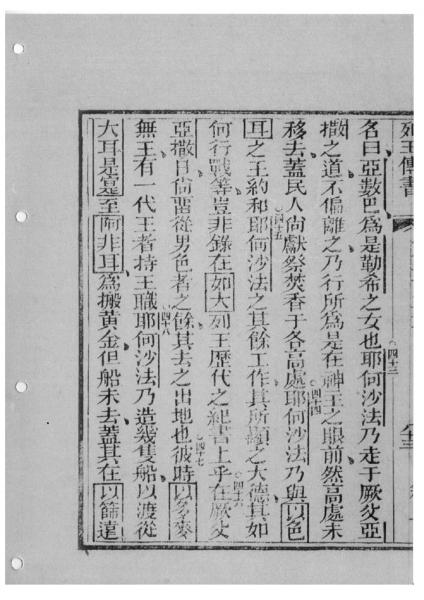 列王傳書
名曰亞數巴爲是勒希之女也耶何沙法乃走于厥父亞
○四十三
撒之道不偏離之乃行所爲是在神主之眼前然高處未
移去蓋民人尙獻祭焚香于各高處耶何沙法乃與以色
○四十四
○四十五
耳之王約和耶何沙法之其餘工作其所顯之大德其如
何行戰等豈非錄在如大列王歷代之紀書上乎在厥父
○四十六
亞撒日尙畱從男色者之餘其去之出地也彼時以多麥
○四十七
無王有一代王者持王職耶何沙法乃造幾隻船以渡從
○四十八
大耳是寔至阿非耳爲搬黃金但船未去蓋其在以篩遠